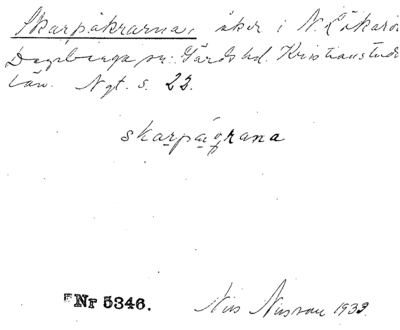 Skarpåkrarna, åker i N. Lökaröd
Degeberga sn. Gärds hd. Kristianstads
län. Ngt. s. 22.
skarpågrana
Nr 5346. Nils Nilsson 1933